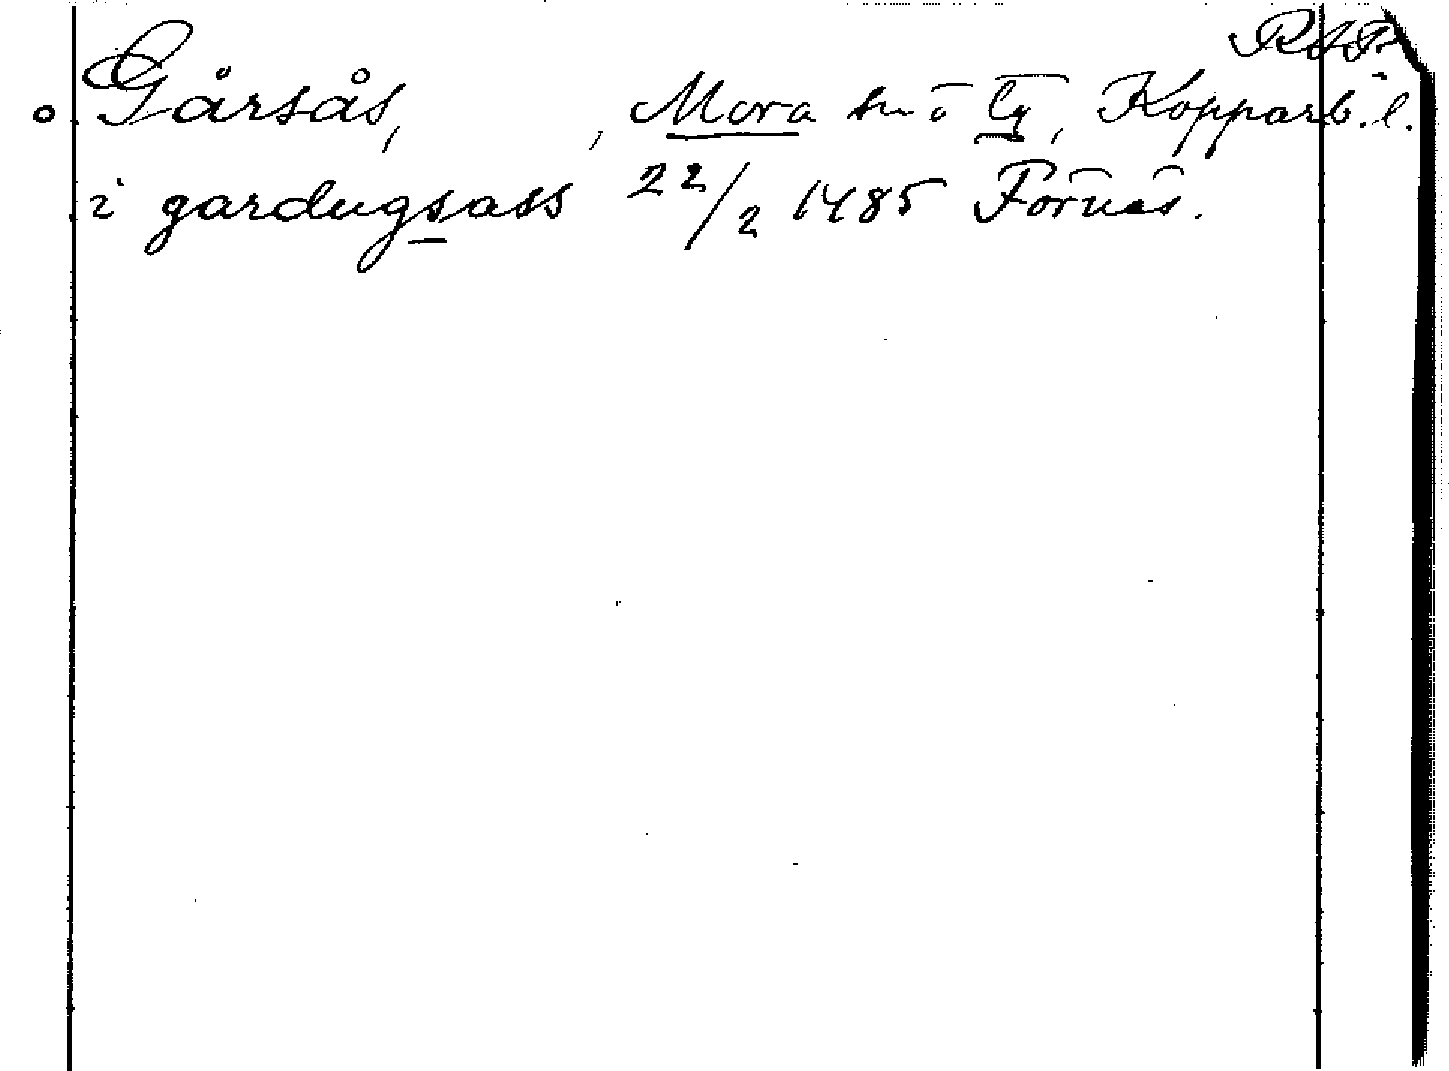 RAP.
Gårsås, , Mora sn o tg, Kopparb. l.
i gardugsass 22/2 1485 Fornäs.